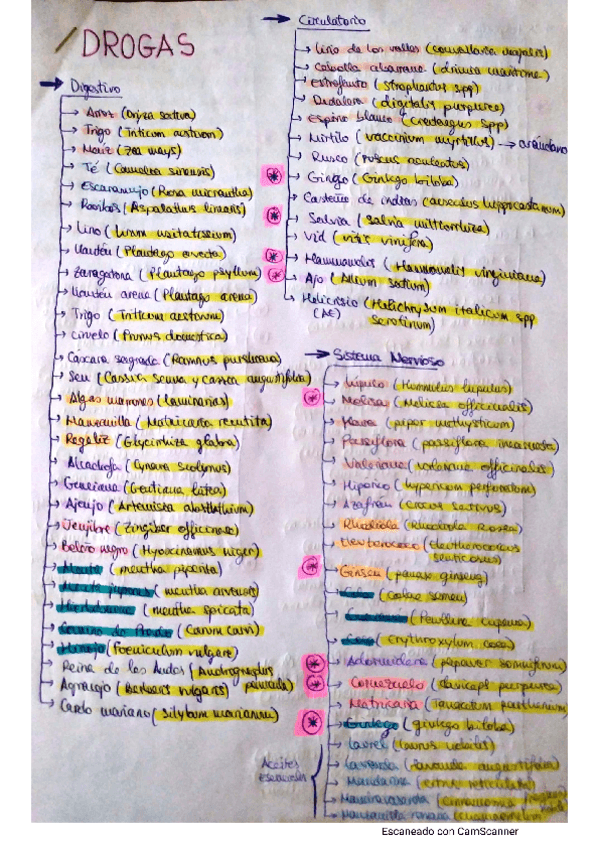 DROGAS
Digestivo
Arroz (Oriza sativa)
Trigo (Triticum aestivum)
Maíz (Zea mays)
Té (Camellia sinensis)
Escaramujo (Rosa micrantha)
Rooibos (Aspalathus linearis)
Lino (Linum usitatissium)
Llantén (Plantago ovata)
Zaragatona (Plantago psyllum)
Llantén arena (Plantago arena)
Trigo (Triticum aestivum)
Ciruelo (Prunus domestica)
Cascara sagrada (Ramnus purshiana)
Sen (Cassia senna y cassia augustifolia)
Algas marrones (laminarias)
Manzanilla (Matricaria recutita)
Regaliz (Glycirrhiza glabra)
Alcachofa (Cynara scolymus)
Genciana (Gentiana lutea)
Ajenjo (Artemisia absthinthium)
Jengibre (Zingiber officinale)
Beleño negro (Hyosciamus niger)
Menta (mentha piperita)
Menta japonesa (mentha arvensis)
Hierbabuena (mentha spicata)
Comino de Prado (Carum carvi)
Hinojo (Foeniculum vulgare)
Reina de los Andes (Andrographis paniculada)
Agracejo (Berberis vulgaris)
Cardo mariano (Silybum marianum)
Circulatorio
Lirio de los valles (convallaria majalis)
Cebolla albarrana (drimia maritima)
Estrofanto (strophantus spp)
Dedalera (digitalis purpurea)
Espino blanco (Crataegus spp)
Mirtilo (vaccinium myrtillus) → arándano
Rusco (ruscus aculeatus)
Ginkgo (Ginkgo biloba)
Castaño de indias (aesculus hippocastanum)
Salvia (salvia miltiorrhiza)
Vid (vitis vinifera)
Hammamelis (Hammamelis virginiana)
Ajo (Allium sativum)
Helicriso (Helichrysum italicum spp
(AE) serotinum)
Sistema Nervioso
Lúpulo (Hummulus lupulus)
Melisa (Melissa officinalis)
Kava (piper methysticum)
Pasiflora (passiflora incarnata)
Valeriana (valeriana officinales)
Hiperico (hypericum perforatum)
Azafrán (Crocus sativus)
Rhodiola (Rhodiola Rosea)
Eleuterococo (Eleutherococcus
senticosus)
Ginseng (panax ginseng)
Cola
(Paullinia cupana)
Coca (Erythroxylum coca)
Adormidera (papaver somniferum)
Cornezuelo (claviceps purpurea)
Matricaria (Tanacetum parthenium)
Ginkgo (ginkgo biloba)
Aceites
esenciales
Laurel (laurus nobilis)
Lavanda
Mandarina (citrus reticulata)
Escaneado con CamScanner